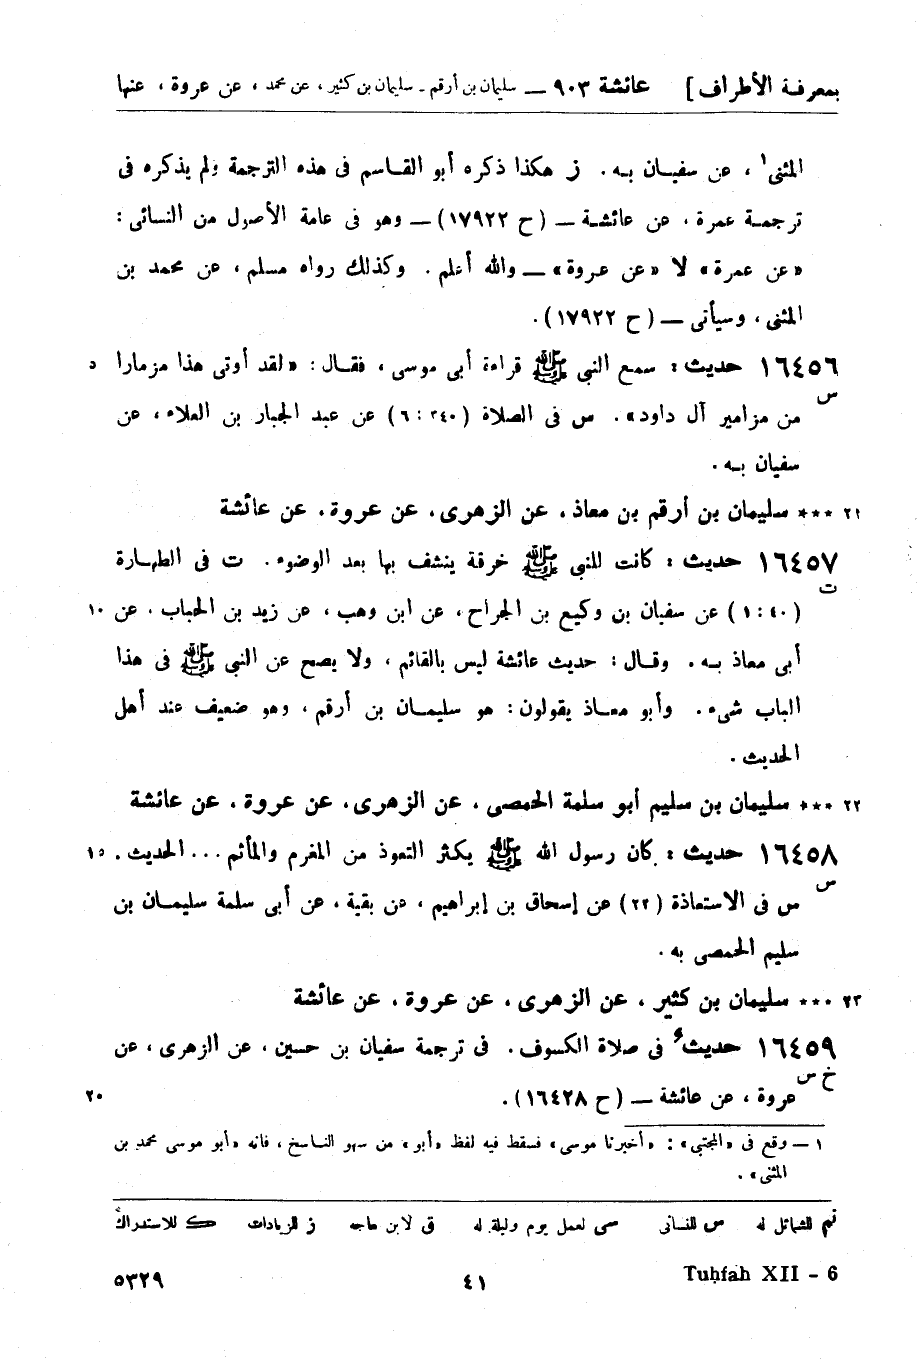 بمعرفة الأطراف] عائشة ٩٠٣ — سليمان بن أرقم - سليمان بن كثير ، عن محمد ، عن عروة ، عنها
المثنى١ ، عن سفيان به . ز هكذا ذكره أبو القاسم فى هذه الترجمة ولم يذكره فى
ترجمة عمرة ، عن عائشة — (ح ١٧٩٢٢) — وهو فى عامة الأصول من النسائى :
«عن عمرة» لا «عن عروة» — والله أعلم . وكذلك رواه مسلم ، عن محمد بن
المثنى ، وسيأتى — (ح ١٧٩٢٢) .
١٦٤٥٦ حديث : سمع النبي ﷺ قراءة أبى موسى ، فقال : «لقد أوتى هذا مزمارا ٥
س
من مزامير آل داود» . س فى الصلاة (٣٤٠ : ٦) عن عبد الجبار بن العلاء ، عن
سفيان به .
٢١ *** سليمان بن أرقم بن معاذ ، عن الزهرى ، عن عروة ، عن عائشة
١٦٤٥٧ حديث : كانت للنبي ﷺ خرقة ينشف بها بعد الوضوء . ت فى الطهارة
ت
(٤٠ : ١) عن سفيان بن وكيع بن الجراح ، عن ابن وهب ، عن زيد بن الحباب ، عن ١٠
أبى معاذ به . وقال : حديث عائشة ليس بالقائم ، ولا يصح عن النبي ﷺ فى هذا
الباب شىء . وأبو معاذ يقولون : هو سليمان بن أرقم ، وهو ضعيف عند أهل
الحديث .
٢٢ *** سليمان بن سليم أبو سلمة الحمصى ، عن الزهرى ، عن عروة ، عن عائشة
١٦٤٥٨ حديث : كان رسول الله ﷺ يكثر التعوذ من المغرم والمأثم ... الحديث . ١٥
س
س فى الاستعاذة (٢٢) عن إسحاق بن إبراهيم ، عن بقية ، عن أبى سلمة سليمان بن
سليم الحمصى به .
٢٣ *** سليمان بن كثير ، عن الزهرى ، عن عروة ، عن عائشة
١٦٤٥٩ حديث فى صلاة الكسوف . فى ترجمة سفيان بن حسين ، عن الزهرى ، عن
خ س
عروة ، عن عائشة — (ح ١٦٤٢٨) . ٢٠
١ — وقع فى «المجتبى» : «أخبرنا موسى» فسقط فيه لفظ «أبو» من سهو الناسخ ، فانه «أبو موسى محمد بن
المثنى» .
تم للشمائل له س للنسائى سى لعمل يوم وليلة له ق لابن ماجه ز للزيادات ك للاستدراك
Tuḥfah XII - 6 ٤١ ٥٣٢٩